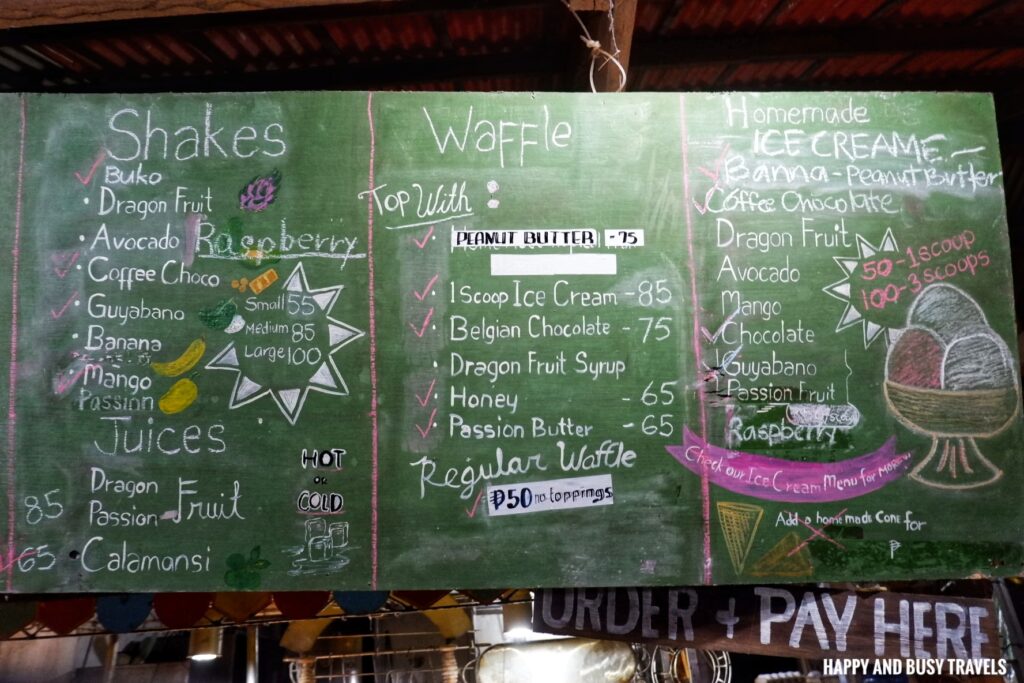 Shakes
Buko
Dragon Fruit
Avocado Raspberry
Coffee Choco
Guyabano
Banana
Mango
Passion
Small 55
Medium 85
Large 100
Juices
HOT
or
COLD
85 Dragon
Passion Fruit
65 Calamansi
Waffle
Top With :
PEANUT BUTTER -75
1 Scoop Ice Cream - 85
Belgian Chocolate - 75
Dragon Fruit Syrup
Honey - 65
Passion Butter - 65
Regular Waffle
₱50 no toppings
Homemade
ICE CREAME
Banna - Peanut Butter
Coffee Chocolate
Dragon Fruit
Avocado
Mango
Chocolate
Guyabano
Passion Fruit
Raspberry
50 - 1 scoop
100 - 3 scoops
Check our Ice Cream Menu for More
Add a homemade Cone for
₱
ORDER + PAY HERE
HAPPY AND BUSY TRAVELS